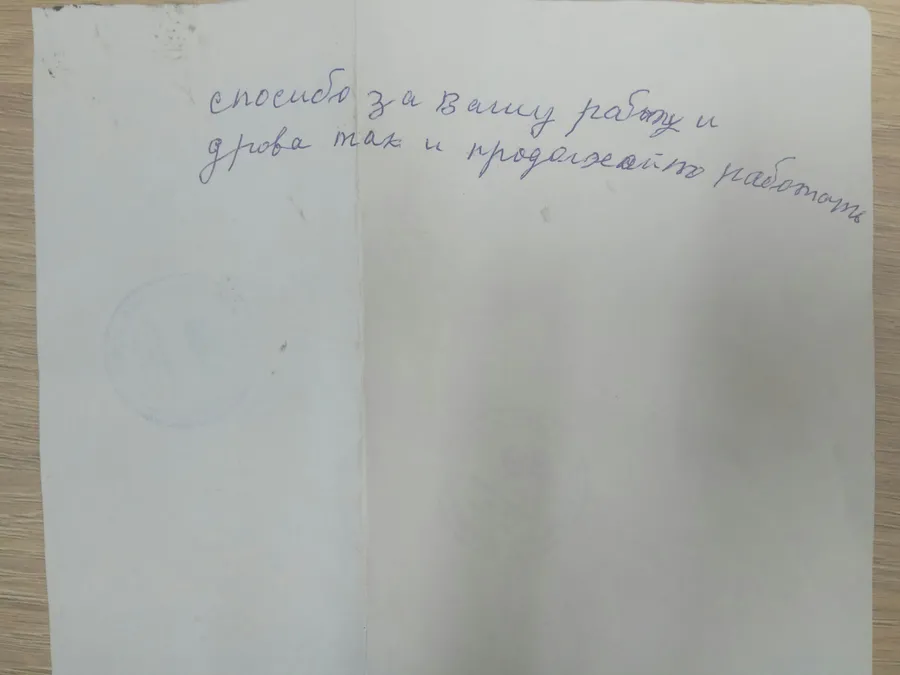 спосибо за вашу работу и
дрова так и продолжайто работать